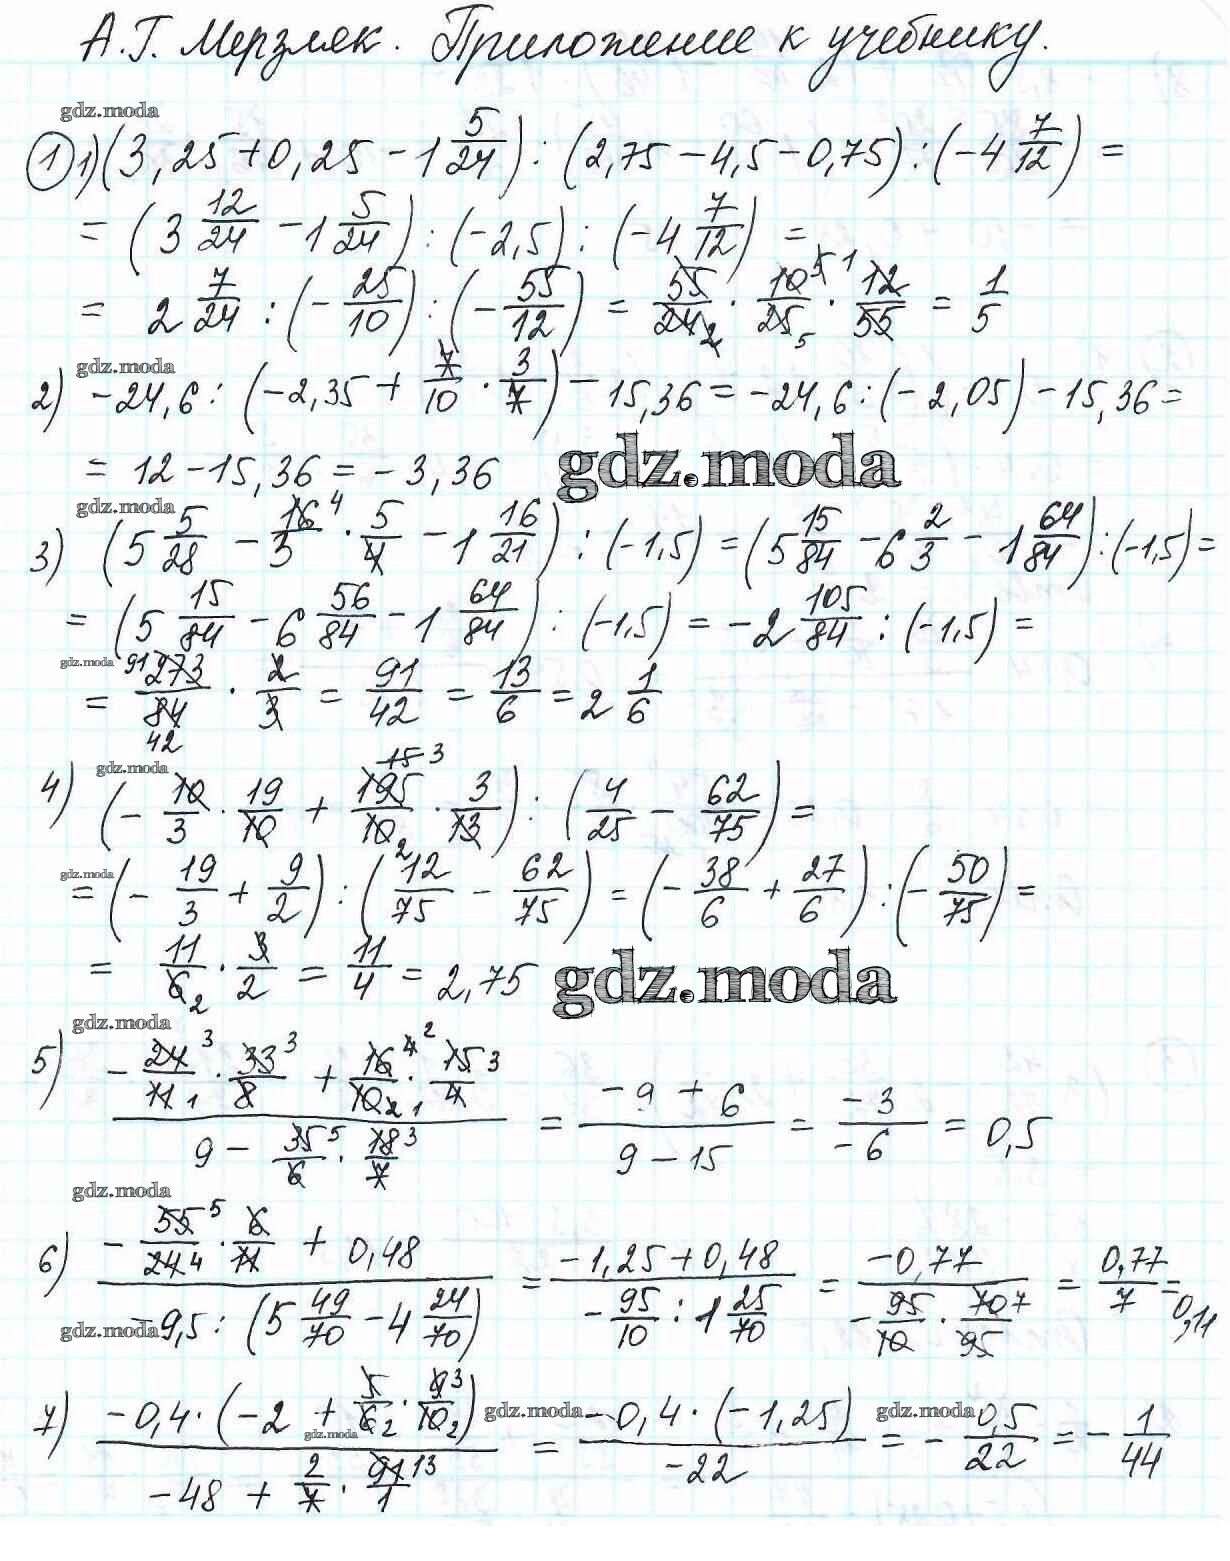 А.Г. Мерзляк. Приложение к учебнику.
gdz.moda
① 1) (3,25 + 0,25 - 1 5/24) : (2,75 - 4,5 - 0,75) : (-4 7/12) =
= (3 12/24 - 1 5/24) : (-2,5) : (-4 7/12) =
= 2 7/24 : (- 25/10) : (- 55/12) = 55/24 2 · 10/25 5 · 5 1 12/55 = 1/5
gdz.moda
2) -24,6 : (-2,35 + 7/10 · 3/7) - 15,36 = -24,6 : (-2,05) - 15,36 =
= 12 - 15,36 = -3,36
gdz.moda
gdz.moda
3) (5 5/28 - 16 4/3 · 5/4 - 1 16/21) : (-1,5) = (5 15/84 - 6 2/3 - 1 64/84) : (-1,5) =
= (5 15/84 - 6 56/84 - 1 64/84) : (-1,5) = -2 105/84 : (-1,5) =
gdz.moda
= 91 273/84 42 · 2/3 = 91/42 = 13/6 = 2 1/6
gdz.moda
4) (- 10/3 · 19/10 + 195 15 3/10 2 · 3/13) : (4/25 - 62/75) =
gdz.moda
= (- 19/3 + 9/2) : (12/75 - 62/75) = (- 38/6 + 27/6) : (- 50/75) =
= 11/6 2 · 3/2 = 11/4 = 2,75
gdz.moda
gdz.moda
5) (- 24 3/11 1 · 33 3/8 + 16 4 2/10 2 1 · 15 3/4)/(9 - 35 5/6 · 18 3/7) = (-9 + 6)/(9 - 15) = -3/-6 = 0,5
gdz.moda
6) (- 55 5/24 4 · 6/11 + 0,48)/(-9,5 : (5 49/70 - 4 24/70)) = (-1,25 + 0,48)/(- 95/10 : 1 25/70) = -0,77/(- 95/10 · 70 7/95) = 0,77/7 = 0,11
gdz.moda
7) (-0,4 · (-2 + 5/6 2 · 9 3/10 2))/(-48 + 2/7 · 91 13/1) = (-0,4 · (-1,25))/-22 = - 0,5/22 = - 1/44
gdz.moda
gdz.moda
gdz.moda